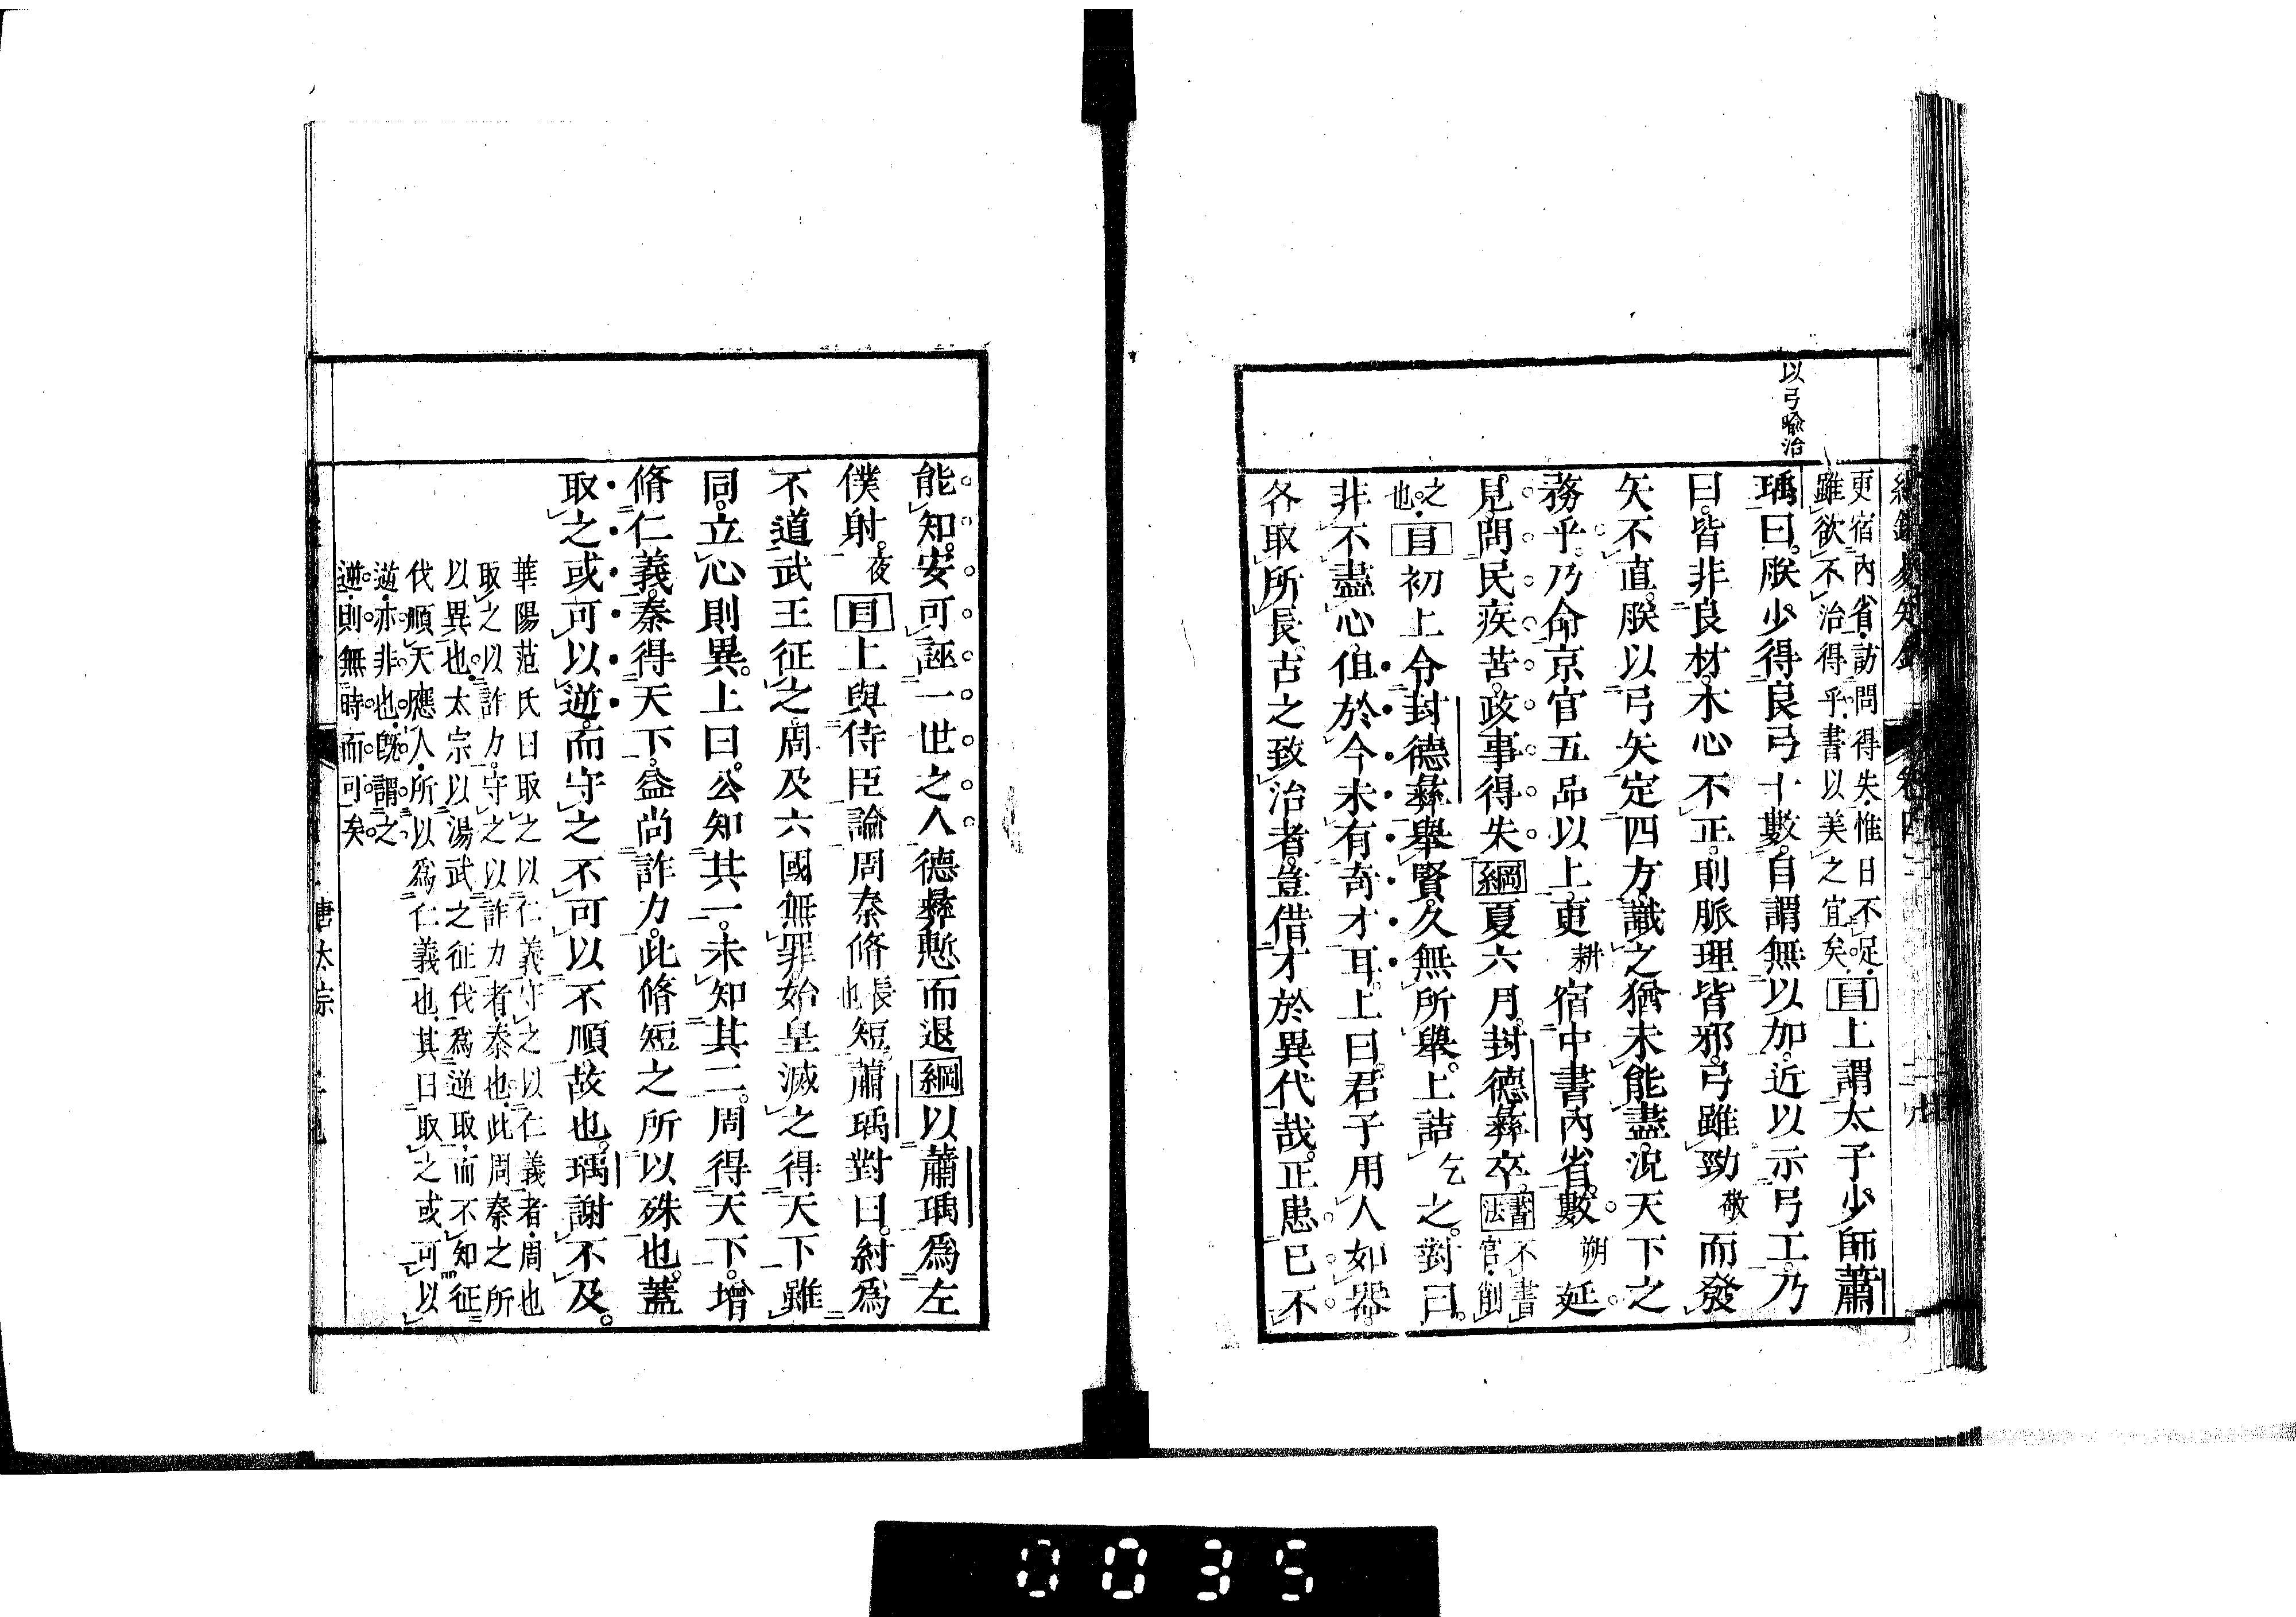 以弓喩治
更宿內省訪問得失惟日不足
雖欲不治得乎書以美之宜矣目上謂太子少師蕭
瑀曰朕少得良弓十數自謂無以加近以示弓工乃
曰皆非良材木心不正則脈理皆邪弓雖勁敬而發
矢不直朕以弓矢定四方識之猶未能盡況天下之
務乎乃命京官五品以上更耕宿中書內省數朔延
見問民疾苦政事得失綱夏六月封德彝卒書法不書官削
之也目初上令封德彝舉賢久無所舉上詰乞之對曰
非不盡心但於今未有奇才耳上曰君子用人如器
各取所長古之致治者豈借才於異代哉正患已不
能知安可誣一世之人德彝慙而退綱以蕭瑀爲左
僕射夜目上與侍臣論周秦脩長也短蕭瑀對曰紂爲
不道武王征之周及六國無罪始皇滅之得天下雖
同立心則異上曰公知其一未知其二周得天下增
脩仁義秦得天下益尚詐力此脩短之所以殊也蓋
取之或可以逆而守之不可以不順故也瑀謝不及
華陽范氏曰取之以仁義守之以仁義者周也
取之以詐力守之以詐力者秦也此周秦之所
以異也太宗以湯武之征伐爲逆取而不知征
伐順天應人所以爲仁義也其曰取之或可以
逆亦非也旣謂之
逆則無時而可矣
唐太宗